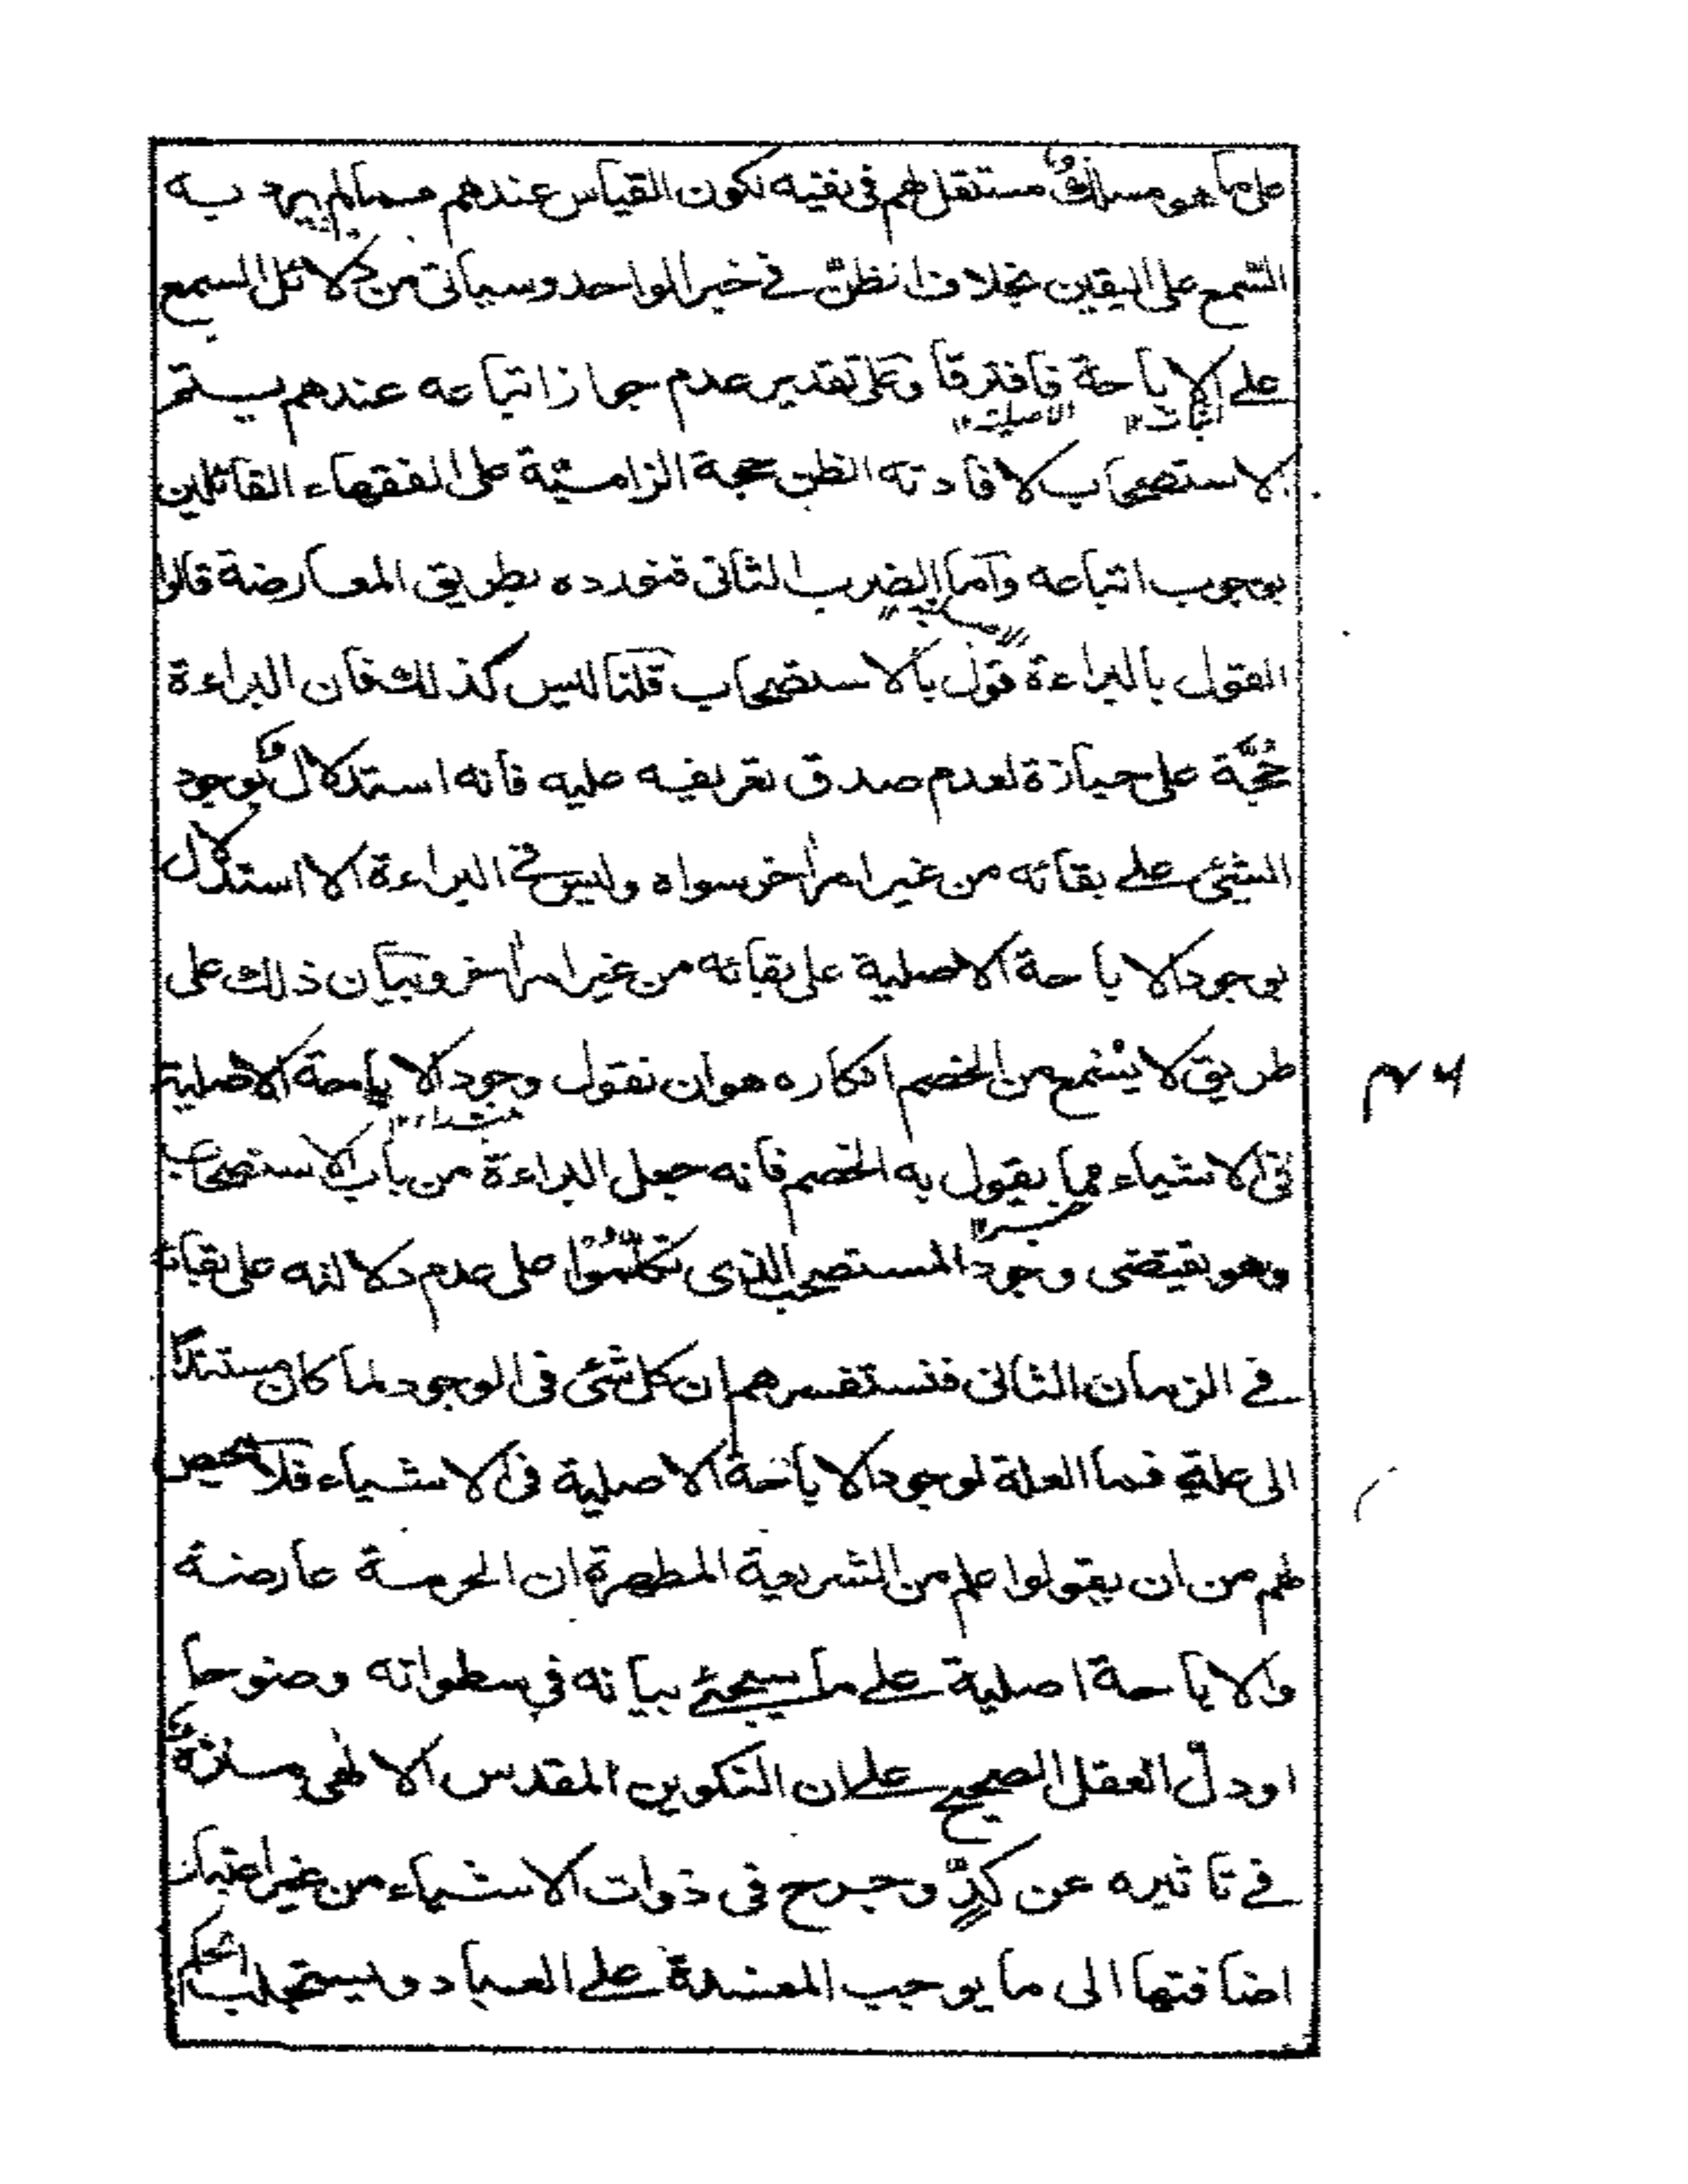 على ما هو مسلك مستقل لهم في نفيه لكون القياس عندهم مما لم يرد به
السّمع على اليقين بخلاف الظنّ في خبر الواحد وسيأتي من دلائل السمع
على الاباحة فافترقا وعلى تقدير عدم جواز اتباعه عندهم يستقر
اثبات الاصلية
بالاستصحاب لافادته الظن حجة الزامية على الفقهاء القائلين
بوجوب اتباعه وآما الضرب الثاني فنورده بطريق المعارضة قالوا
القول بالبراءة قول بالاستصحاب قلنا ليس كذلك فان البراءة
حُجَّة على حيازة لعدم صدق تعريفيه عليه فانه استدلال بوجود
الشيئ على بقائه من غير امر أخر سواه وليس في البراءة الا استدلال
بوجود الاباحة الاصلية على بقائه من غير امر أخر وبيان ذلك على
طريق لا يسمع من الخصم انكاره هو ان نقول وجود الاباحة الاصلية
في الاشياء مما يقول به الخصم فانه جعل البراءة من باب الاستصحاب
وهو يقتضى وجود المستصحب الذى تكلّموا على عدم دلالته على بقائه
في الزمان الثانى فنستفسرهم ان كل شئ فى الوجود لما كان مستندا
الى علة فما العلة لوجود الاباحة الاصلية فى الاشياء فلا محيص
لهم من ان يقولوا علم من الشريعة المطهرة ان الحرمة عارضة
والاباحة اصلية على ما سيجئ بيانه في سطواته وضوحا
او دلّ العقل الصحيح على ان التكوين المقدس الالهي منزه
في تاثيره عن كدٍّ وجرح فى ذوات الاشياء من غير اعتبار
اضافتها الى ما يوجب المفسدة على العباد وليستجلب